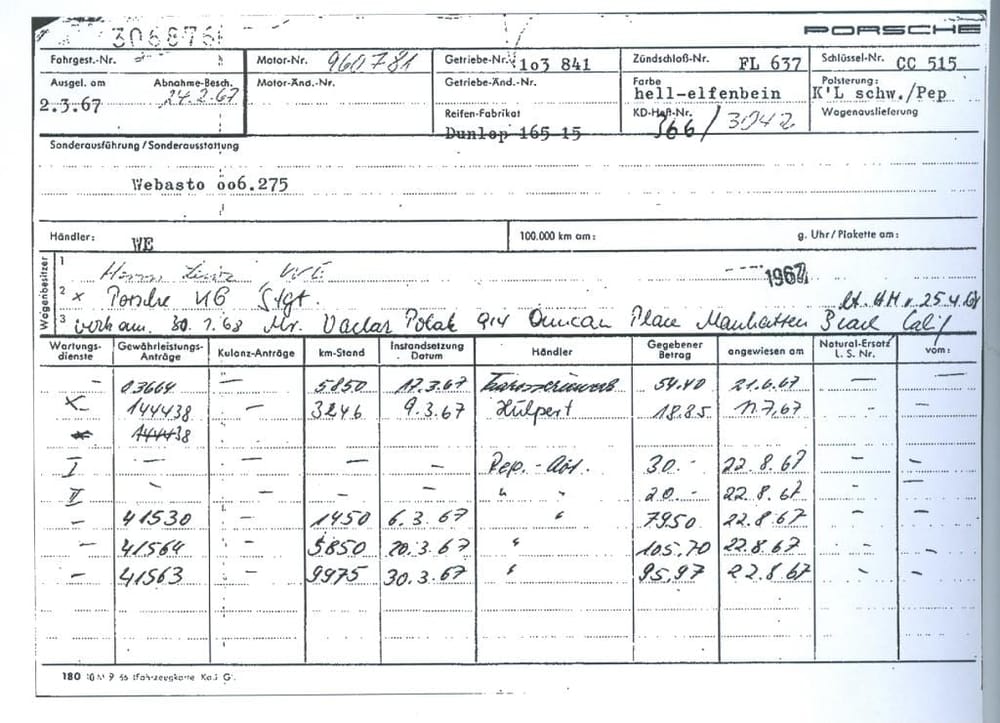 306876
PORSCHE
Fahrgest.-Nr. Motor-Nr. 960781 Getriebe-Nr. 103 841 Zündschloß-Nr. FL 637 Schlüssel-Nr. CC 515
Ausgel. am Abnahme-Besch. Motor-Änd.-Nr. Getriebe-Änd.-Nr. Farbe Polsterung:
2.3.67 24.2.67 hell-elfenbein K'L schw./Pep
Reifen-Fabrikat KD-Heft-Nr. Wagenauslieferung
Dunlop 165 15 566/3042
Sonderausführung/Sonderausstattung
Webasto 006.275
Händler: WE 100.000 km am: g. Uhr/Plakette am:
Wagenbesitzer
1 1967
2 x Porsche KG Stgt. 25.4.
3 verk am. 30.1.68 Mr. Vaclav Polak 914 Duncan Place Manhatten Beach Calif
Wartungsdienste Gewährleistungs-Anträge Kulanz-Anträge km-Stand Instandsetzung Datum Händler Gegebener Betrag angewiesen am Natural-Ersatz L. S. Nr. vom:
– 03664 – 5850 17.3.67 54.40 21.6.67 – –
x 144438 – 3246 9.3.67 Hülpert 18.85 11.7.67 - –
x 144438
I – – – – Rep. - Abt. 30.- 22.8.67 – –
II – – – – " " 20.- 22.8.67 – –
– 41530 – 1450 6.3.67 " 7950 22.8.67 – –
– 41564 – 5850 20.3.67 " 105,70 22.8.67 – –
– 41563 – 9975 30.3.67 " 95,97 22.8.67 – –
180